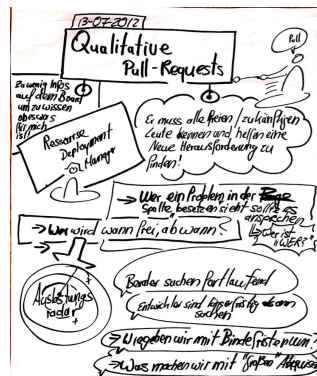 13-07-2012
Qualitative
Pull-Requests
Pull
Zu wenig Infos
auf dem Board
um zu wissen
ob es was
für mich
ist
Ressource
Deployment
Manager
Er muss alle freien / zukünftigen
Leute kennen und helfen eine
Neue Herausforderung zu
finden!
→ Wer ein Problem in der
Spalte besetzen sieht sollte es
ansprechen
→ Wer ist
"WER?"
→ Wer wird wann frei, ab wann?
Auslastungs
radar
Berater suchen fortlaufend
Entwickler sind kurzfristig
suchen
→ Wie gehen wir mit Bindefristen um?
→ Was machen wir mit "großen"